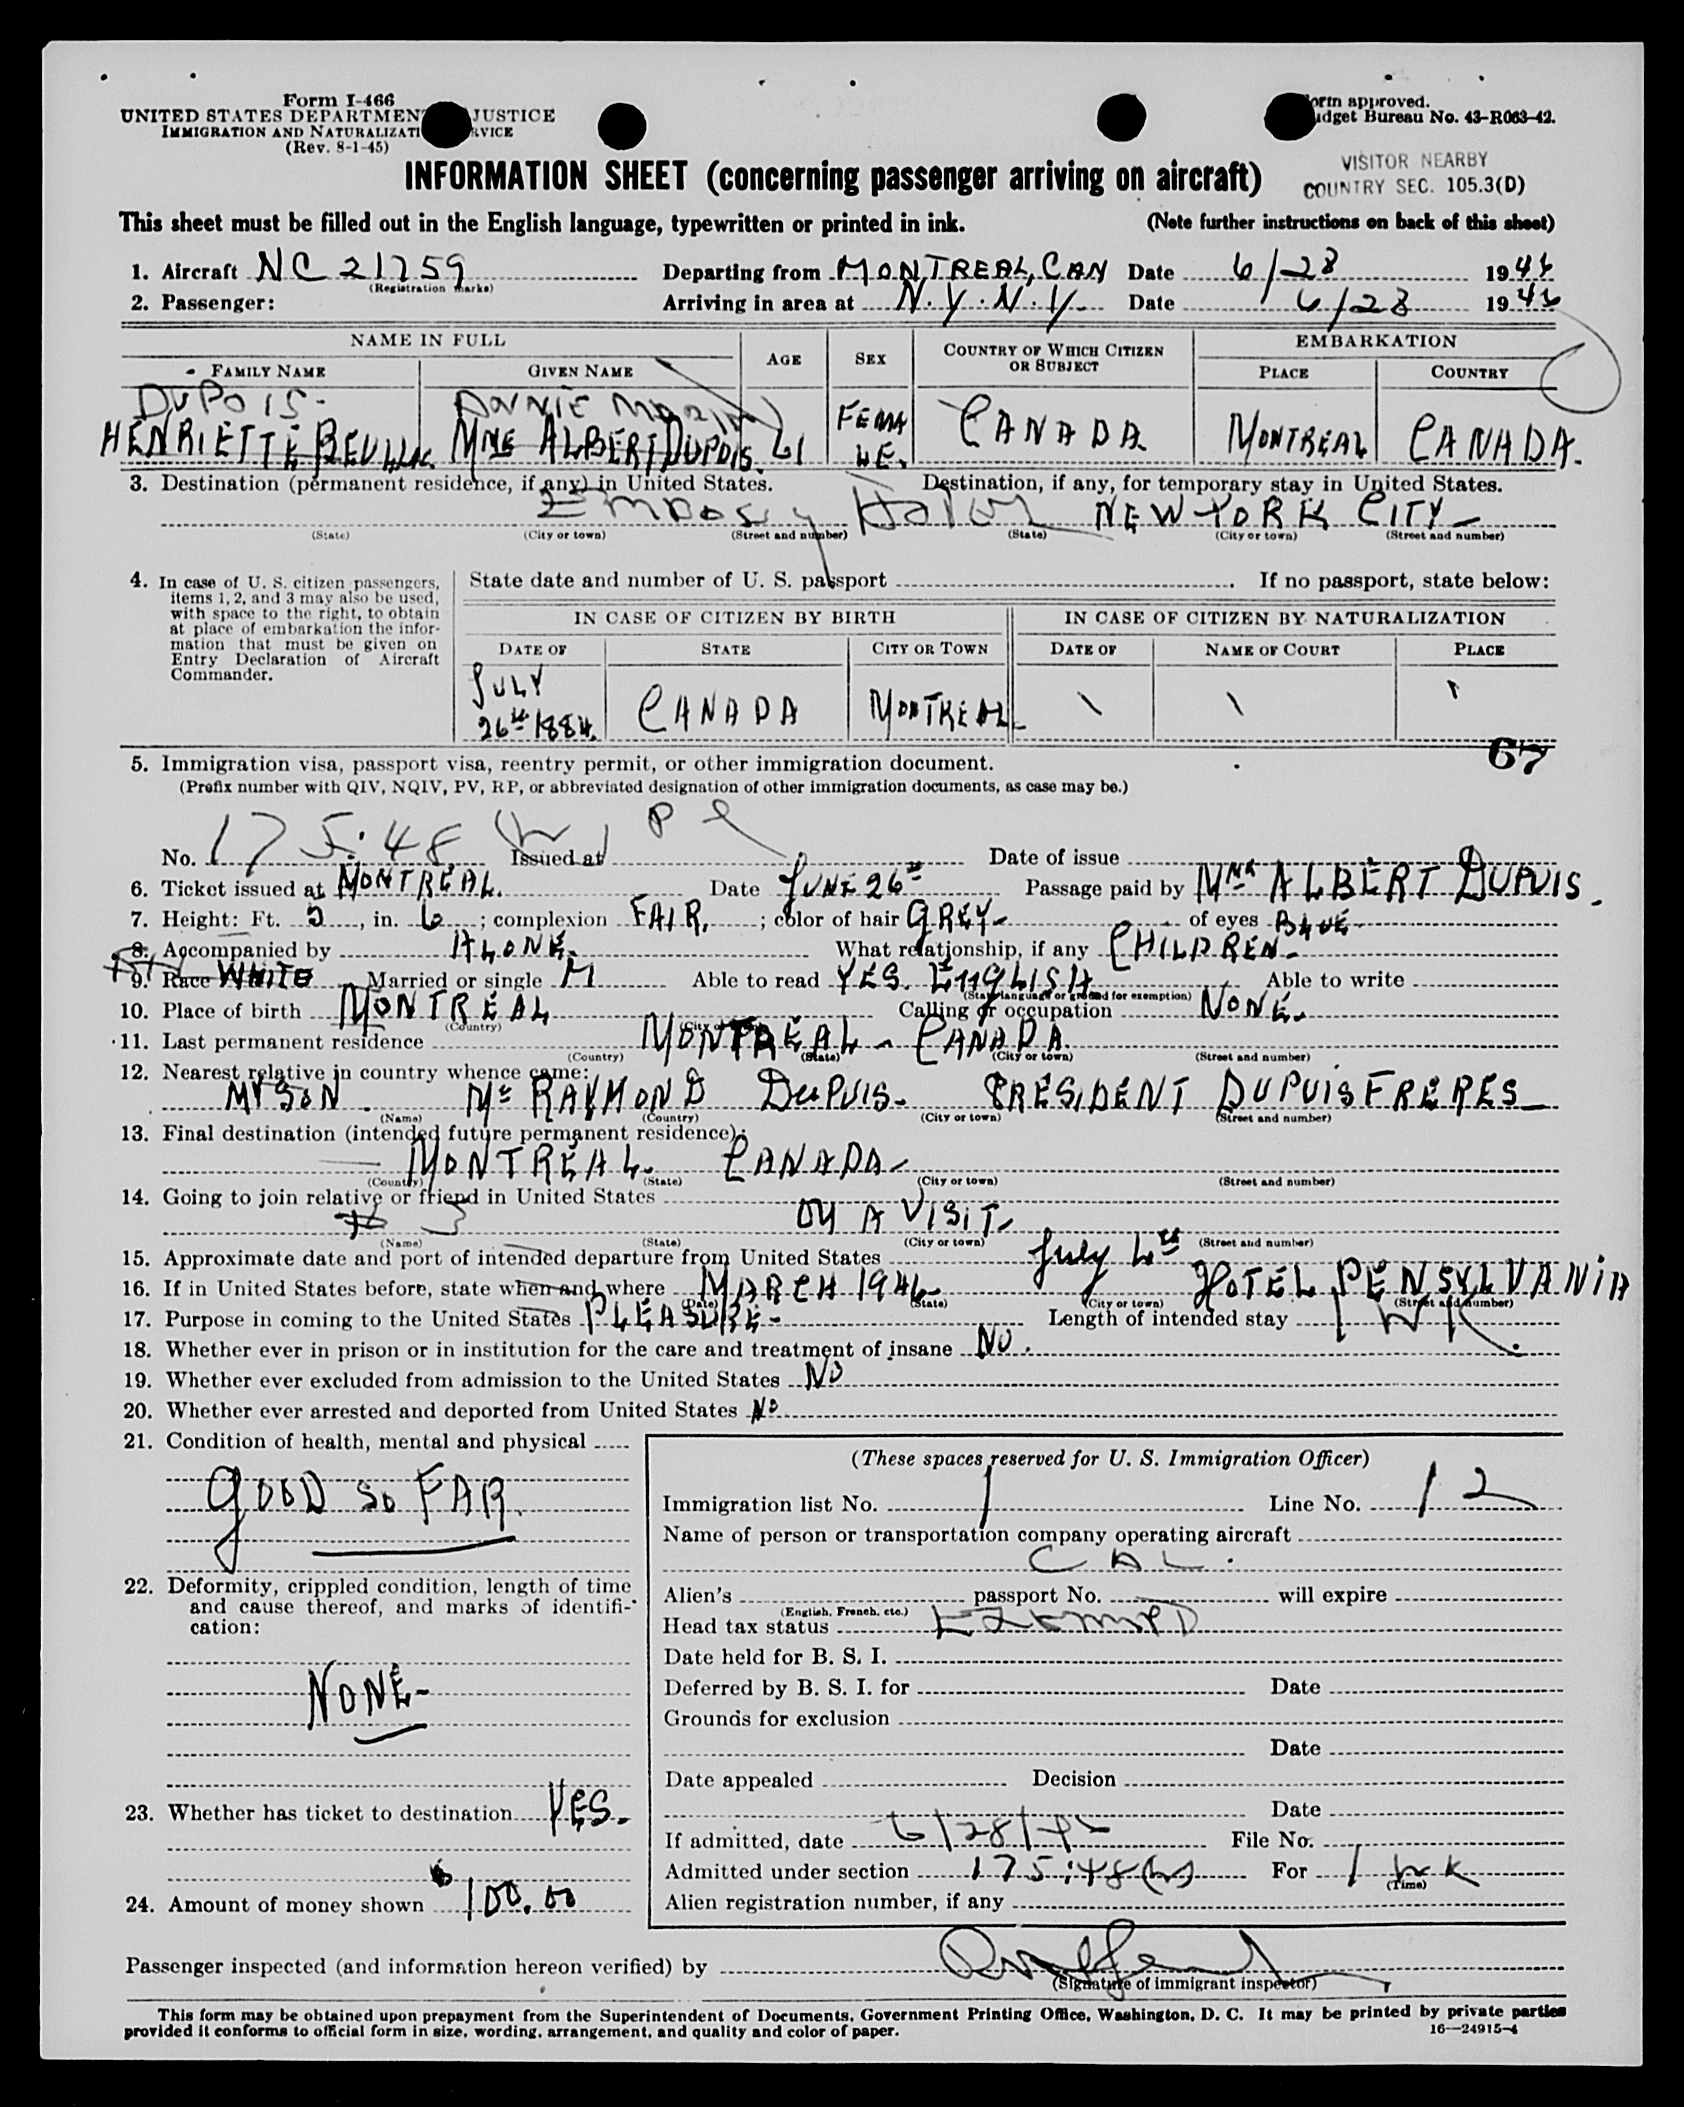 Form I-466
UNITED STATES DEPARTMENT JUSTICE
IMMIGRATION AND NATURALIZATI RVICE
(Rev. 8-1-45)
orm approved.
udget Bureau No. 43-R063-42.
INFORMATION SHEET (concerning passenger arriving on aircraft)
VISITOR NEARBY
COUNTRY SEC. 105.3(D)
This sheet must be filled out in the English language, typewritten or printed in ink. (Note further instructions on back of this sheet)
1. Aircraft NC 21759 Departing from MONTREAL, CAN Date 6/28 1946
(Registration marks)
2. Passenger: Arriving in area at N.Y. N.Y. Date 6/28 1946
NAME IN FULL AGE SEX COUNTRY OF WHICH CITIZEN OR SUBJECT EMBARKATION
FAMILY NAME GIVEN NAME PLACE COUNTRY
DUPOIS - ANNIE MARIN
HENRIETTE BEULLAC. MME ALBERT DUPUIS. 61 FEMALE. CANADA MONTREAL CANADA.
3. Destination (permanent residence, if any) in United States. Destination, if any, for temporary stay in United States.
Embassy Hotel NEW YORK CITY
(State) (City or town) (Street and number) (State) (City or town) (Street and number)
4. In case of U. S. citizen passengers, items 1, 2, and 3 may also be used, with space to the right, to obtain at place of embarkation the information that must be given on Entry Declaration of Aircraft Commander.
State date and number of U. S. passport . If no passport, state below:
IN CASE OF CITIZEN BY BIRTH IN CASE OF CITIZEN BY NATURALIZATION
DATE OF STATE CITY OR TOWN DATE OF NAME OF COURT PLACE
JULY
26th 1884. CANADA MONTREAL
67
5. Immigration visa, passport visa, reentry permit, or other immigration document.
(Prefix number with QIV, NQIV, PV, RP, or abbreviated designation of other immigration documents, as case may be.)
No. 175.48 Issued at Date of issue
6. Ticket issued at MONTREAL. Date JUNE 26th Passage paid by MME ALBERT DUPUIS.
7. Height: Ft. 5, in. 6; complexion FAIR.; color of hair GREY- of eyes BLUE-
8. Accompanied by ALONE. What relationship, if any CHILDREN-
9. Race WHITE Married or single M Able to read YES. ENGLISH. Able to write
(State language or ground for exemption)
10. Place of birth MONTREAL Calling or occupation NONE.
(Country) (City or town)
11. Last permanent residence MONTREAL - CANADA.
(Country) (State) (City or town) (Street and number)
12. Nearest relative in country whence came:
MY SON. Mr RAYMOND DUPUIS- PRESIDENT DUPUIS FRERES
(Name) (Country) (City or town) (Street and number)
13. Final destination (intended future permanent residence):
MONTREAL. CANADA-
(Country) (State) (City or town) (Street and number)
14. Going to join relative or friend in United States
ON A VISIT-
(Name) (State) (City or town) (Street and number)
15. Approximate date and port of intended departure from United States July 4th
16. If in United States before, state when and where MARCH 1946 HOTEL PENSYLVANIA
(Date) (State) (City or town) (Street and number)
17. Purpose in coming to the United States PLEASURE- Length of intended stay 1 WK.
18. Whether ever in prison or in institution for the care and treatment of insane NO.
19. Whether ever excluded from admission to the United States NO
20. Whether ever arrested and deported from United States NO
21. Condition of health, mental and physical
GOOD SO FAR.
22. Deformity, crippled condition, length of time and cause thereof, and marks of identification:
NONE-
23. Whether has ticket to destination YES-
24. Amount of money shown $100.00
(These spaces reserved for U. S. Immigration Officer)
Immigration list No. 1 Line No. 12
Name of person or transportation company operating aircraft
CAL.
Alien's passport No. will expire
(English, French, etc.)
Head tax status EXEMPTED
Date held for B. S. I.
Deferred by B. S. I. for Date
Grounds for exclusion
Date
Date appealed Decision
Date
If admitted, date 6/28/46 File No.
Admitted under section 175.48(b) For 1 wk
(Time)
Alien registration number, if any
Passenger inspected (and information hereon verified) by
(Signature of immigrant inspector)
This form may be obtained upon prepayment from the Superintendent of Documents, Government Printing Office, Washington, D. C. It may be printed by private parties
provided it conforms to official form in size, wording, arrangement, and quality and color of paper. 16—24915-4